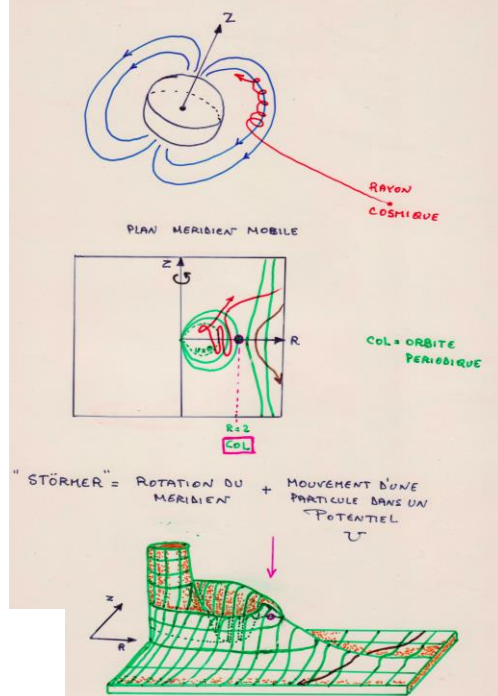 Z
RAYON
COSMIQUE
PLAN MERIDIEN MOBILE
Z
R
COL = ORBITE
PERIODIQUE
R=2
COL
"STÖRMER" = ROTATION DU MERIDIEN + MOUVEMENT D'UNE PARTICULE DANS UN POTENTIEL
U
Z
R